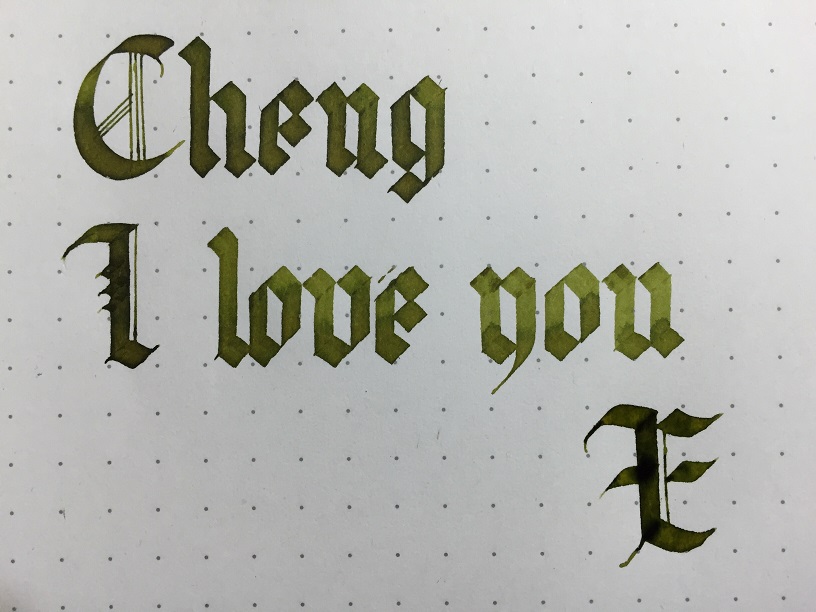 Cheng
I love you
E